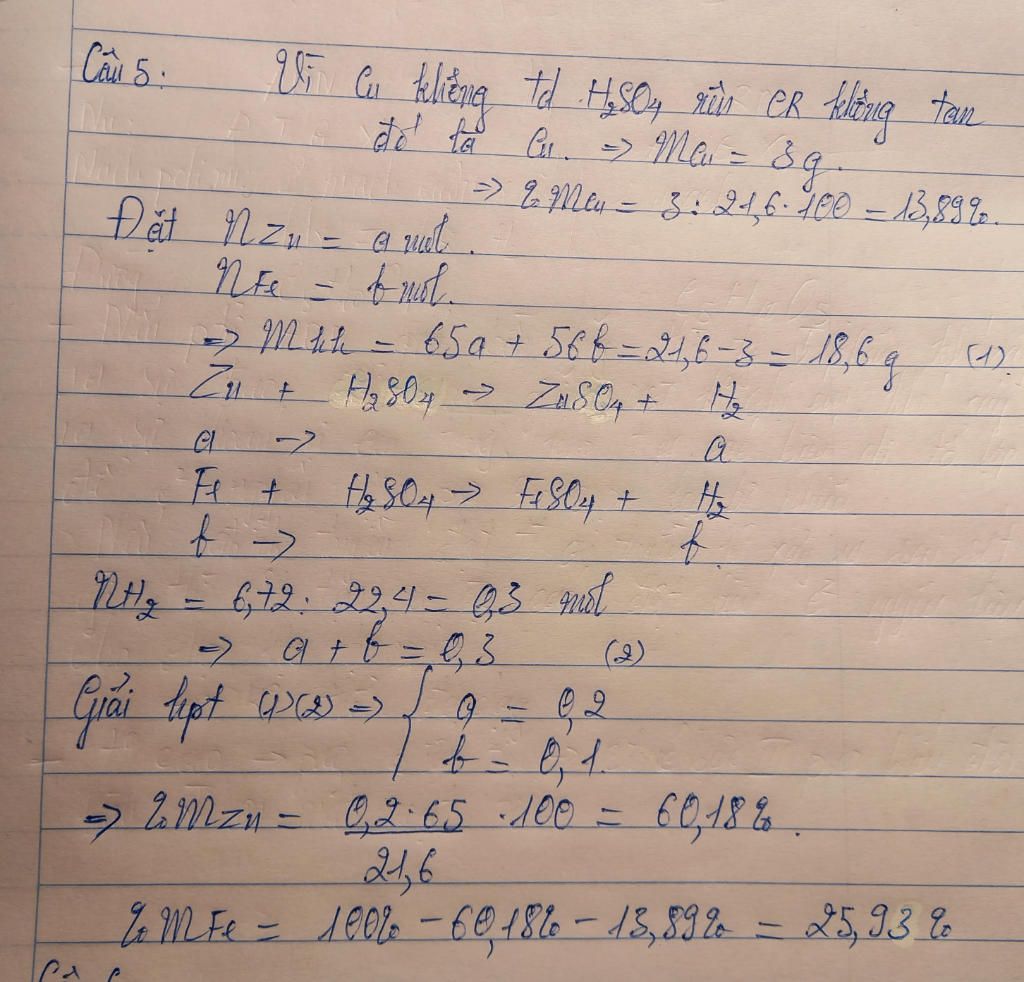 Câu 5: Vì Cu không td H₂SO₄ nên CR không tan
đó là Cu. => mCu = 3g.
=> %mCu = 3 : 21,6 . 100 = 13,89%.
Đặt nZn = a mol.
nFe = b mol.
=> mhh = 65a + 56b = 21,6 - 3 = 18,6g (1).
Zn + H₂SO₄ -> ZnSO₄ + H₂
a -> a
Fe + H₂SO₄ -> FeSO₄ + H₂
b -> b.
nH₂ = 6,72 : 22,4 = 0,3 mol
=> a + b = 0,3 (2)
Giải hpt (1)(2) => { a = 0,2
b = 0,1.
=> %mZn = 0,2 . 65 . 100 = 60,18%.
21,6
%mFe = 100% - 60,18% - 13,89% = 25,93%